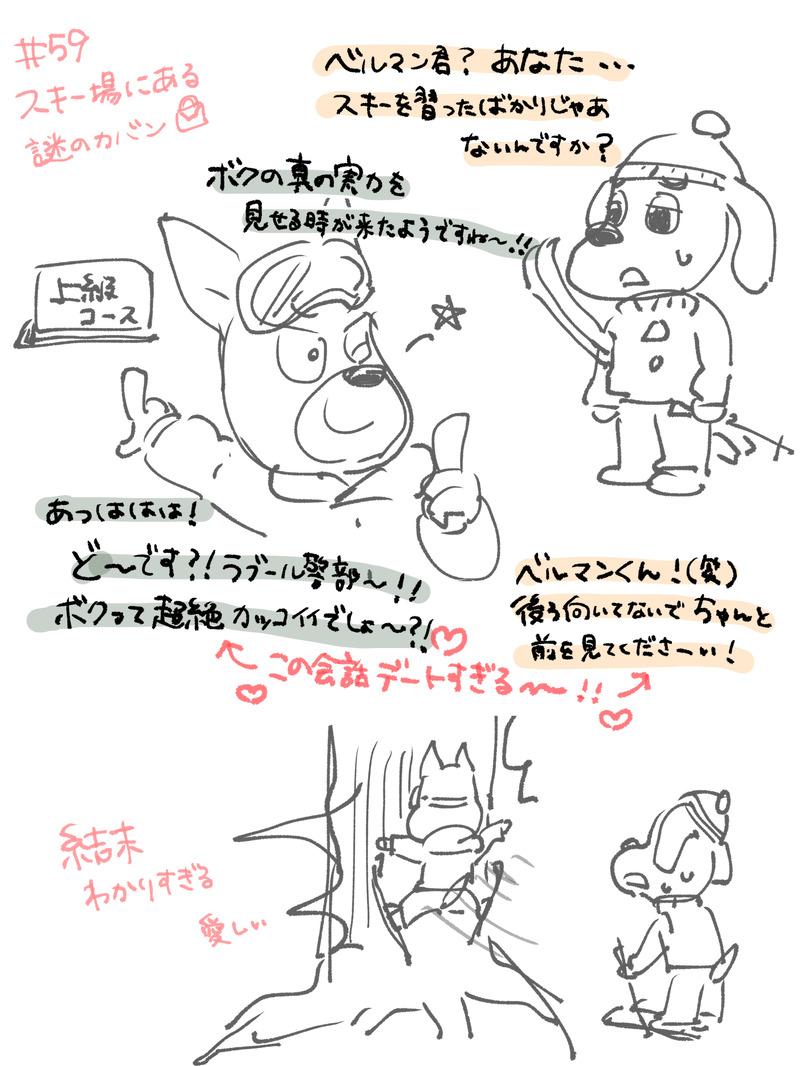 #59
スキー場にある
謎のカバン
ベルマン君？あなた…
スキーを習ったばかりじゃあ
ないんですか？
ボクの真の実力を
見せる時が来たようですね〜!!
上級
コース
あっはははは！
ど〜です?!ラブール警部〜!!
ボクって超絶カッコイイでしょ〜?!
ベルマンくん！(愛)
後ろ向いてないでちゃんと
前を見てくださーい！
この会話デートすぎる〜〜!!
結末
わかりすぎる
愛しい